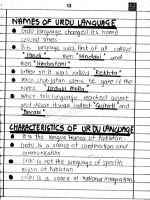 13
NAMES OF URDU LANGUAGE
Urdu language changed its name
several times.
This language was first of all called
"Hindi" then "Hindavi" and
then "Hindustani"
Later on it was called "Rekhta"
When shah jahan came he gave it the
name "Urdui Molla"
When this language reached Gujrat
and decan it was called "Gujrati" and
"Deccani"
CHARACTERISTICS OF URDU LANGUAGE
It is the lingua franca of Pakistan
Urdu is a source of connection and
communication
Urdu is not the language of specific
region of Pakistan
Urdu is a source of national integration